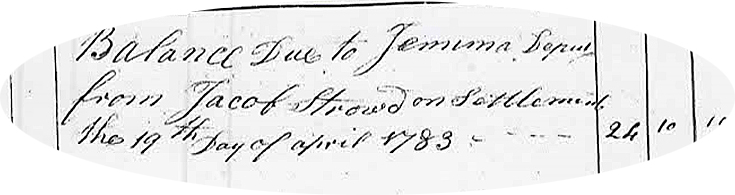 Balance Due to Jemima Depui
from Jacob Strowd on Settlement
the 19th Day of april 1783 - - - - 24 10 11